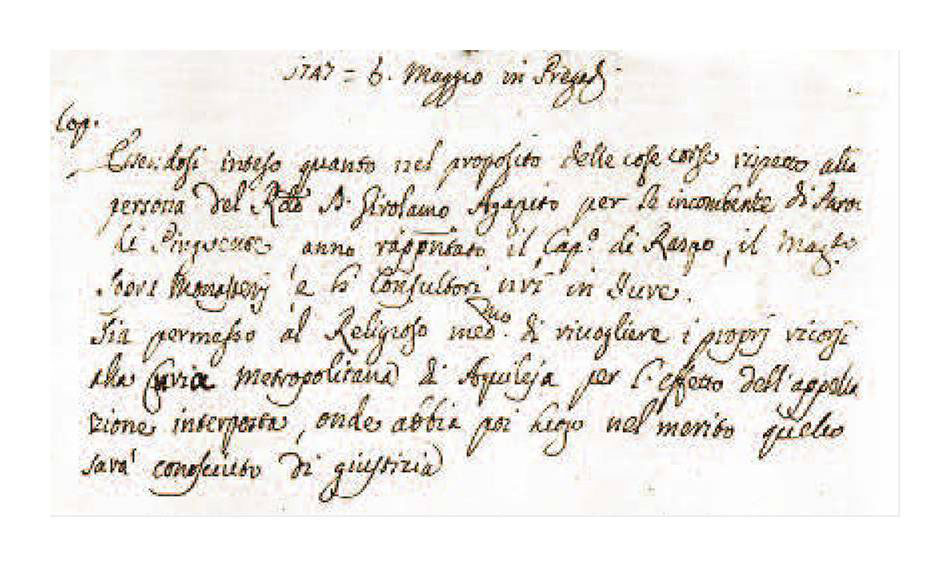 1747 = 6. Maggio in Pregadi
Cop.
Essendosi inteso quanto nel proposito delle cose corse rispetto alla
persona del Rdo D. Girolamo Agapito per le incombenze di
di Pinguente anno rappntato il Capo. di Raspo, il
sopra Monasterj e li Consultori nri in Jure.
Sia permesso al Religioso medmo. di rivogliere i proprj ricorsi
alla Curia Metropolitana di Aquileja per l'effetto dell'appella
zione interposta, onde abbia poi luogo nel merito quello
sarà conosciuto di giustizia